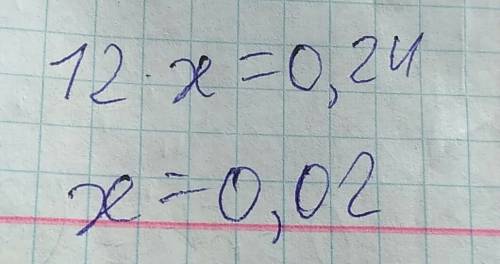 12·x=0,24
x=0,02